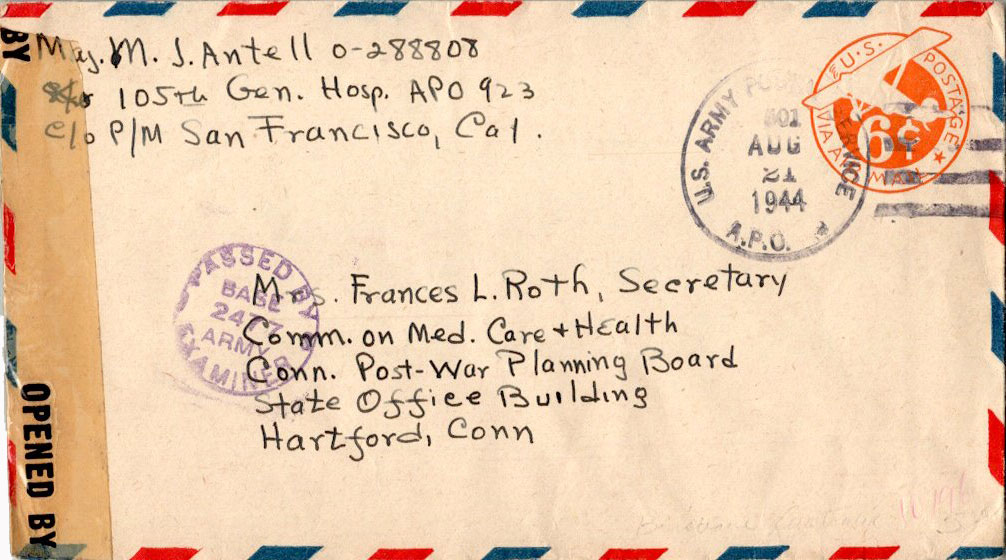 Maj. M. J. Antell O-288808
105th Gen. Hosp. APO 923
c/o P/M San Francisco, Cal.
U.S. POSTAGE
VIA AIR MAIL
6¢
U.S. ARMY POSTAL SERVICE
AUG
21
1944
A.P.O.
PASSED BY
BASE
ARMY
EXAMINER
Mrs. Frances L. Roth, Secretary
Comm. on Med. Care + Health
Conn. Post-War Planning Board
State Office Building
Hartford, Conn
BY
OPENED BY